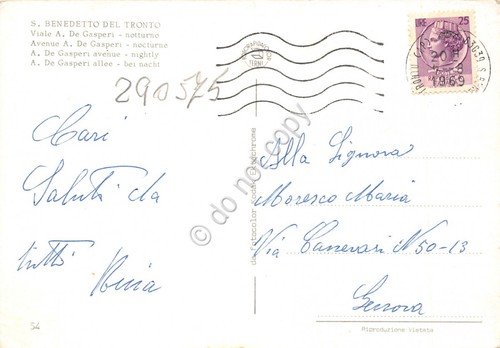 S. BENEDETTO DEL TRONTO
Viale A. De Gasperi - notturno
Avenue A. De Gasperi - nocturne
A. De Gasperi avenue - nightly
A. De Gasperi allee - bei nacht
LIRE 25
1969
290575
Cari
Saluti da
tutti
Alla Signora
Moresco Maria
Via Canevari N 50-13
Genova
do not copy
54
Riproduzione Vietata